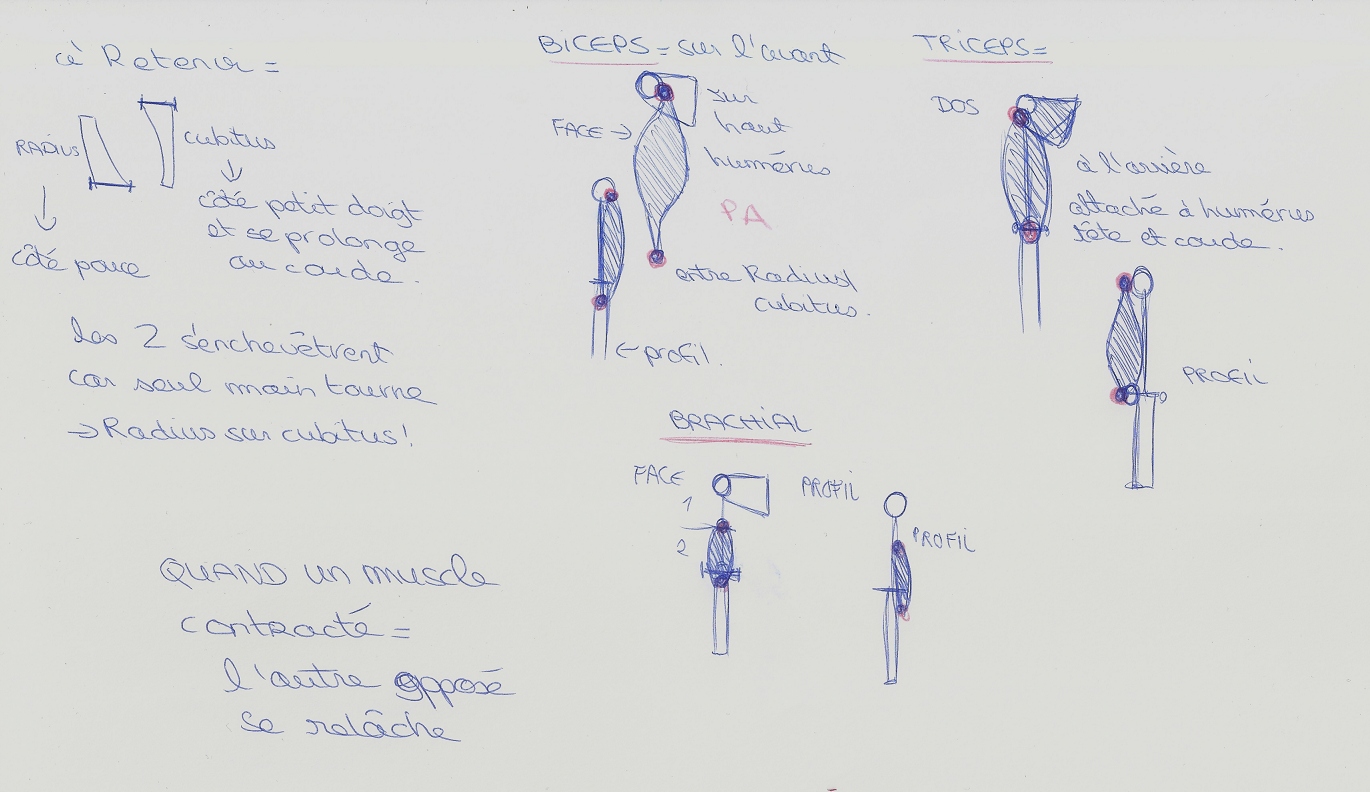 à Retenir =
RADIUS
cubitus
côté pouce
côté petit doigt
et se prolonge
au coude.
les 2 s'enchevêtrent
car seul main tourne
→ Radius sur cubitus!
QUAND un muscle
contracté =
l'autre opposé
se relâche
BICEPS = sur l'avant
FACE →
sur
haut
humérus
PA
entre Radius/
cubitus.
← profil.
TRICEPS =
DOS
à l'arrière
attaché à humérus
tête et coude.
PROFIL
BRACHIAL
FACE
1
2
PROFIL
PROFIL